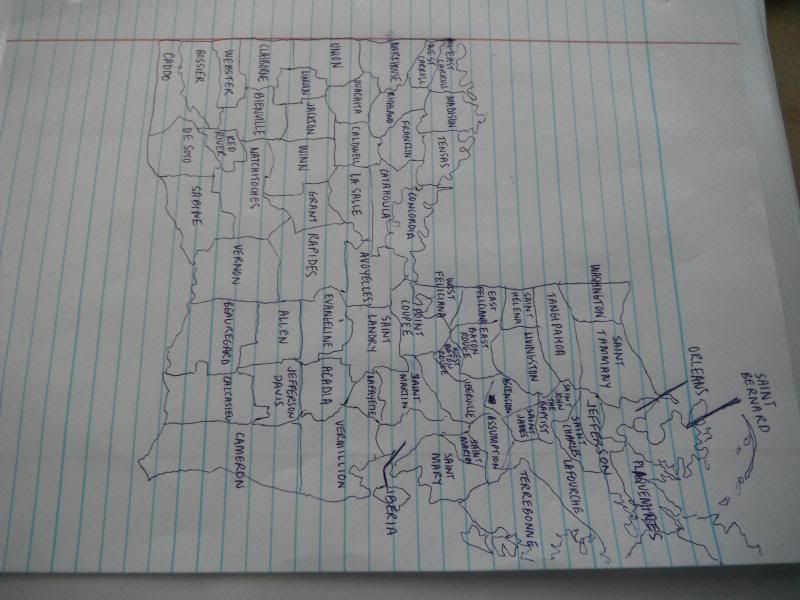 CADDO
BOSSIER
WEBSTER
CLAIBORNE
UNION
MOREHOUSE
WEST
CARROLL
EAST
CARROLL
LINCOLN
JACKSON
OUACHITA
RICHLAND
MADISON
BIENVILLE
DE SOTO
RED
RIVER
NATCHITOCHES
WINN
CALDWELL
FRANKLIN
TENSAS
SABINE
GRANT
LA SALLE
CATAHOULA
CONCORDIA
VERNON
RAPIDES
AVOYELLES
WEST
FELICIANA
EAST
FELICIANA
SAINT
HELENA
TANGIPAHOA
WASHINGTON
BEAUREGARD
ALLEN
EVANGELINE
SAINT
LANDRY
POINT
COUPEE
WEST
BATON
ROUGE
EAST
BATON
ROUGE
LIVINGSTON
SAINT
TAMMANY
CALCASIEU
JEFFERSON
DAVIS
ACADIA
LAFAYETTE
SAINT
MARTIN
IBERVILLE
ASCENSION
SAINT
JOHN
THE
BAPTIST
SAINT
JAMES
SAINT
CHARLES
JEFFERSON
ORLEANS
SAINT
BERNARD
CAMERON
VERMILLION
IBERIA
SAINT
MARY
SAINT
MARTIN
ASSUMPTION
TERREBONNE
LAFOURCHE
PLAQUEMINES